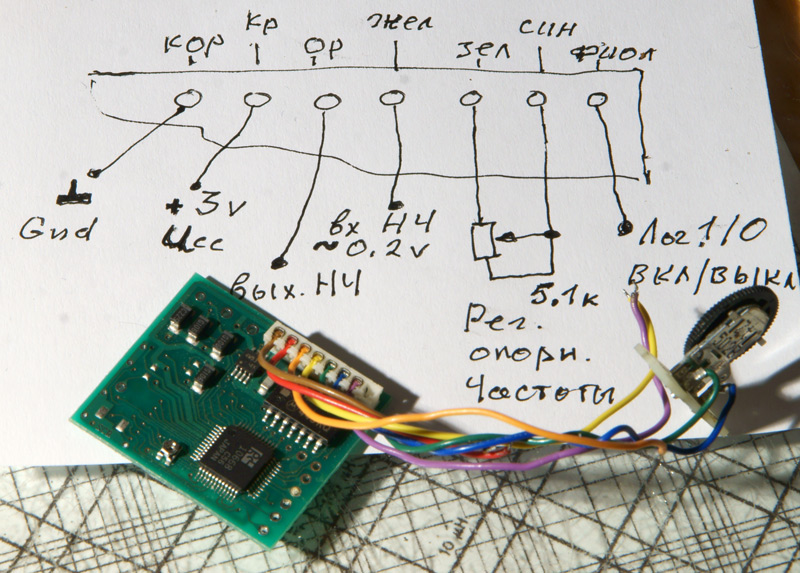 кор кр ор жел зел син фиол
Gnd
+3v
Ucc
вых. НЧ
вх НЧ
~0.2v
5.1к
Рег.
опорн.
частоты
Лог 1/0
вкл/выкл
JAPAN
10 µH